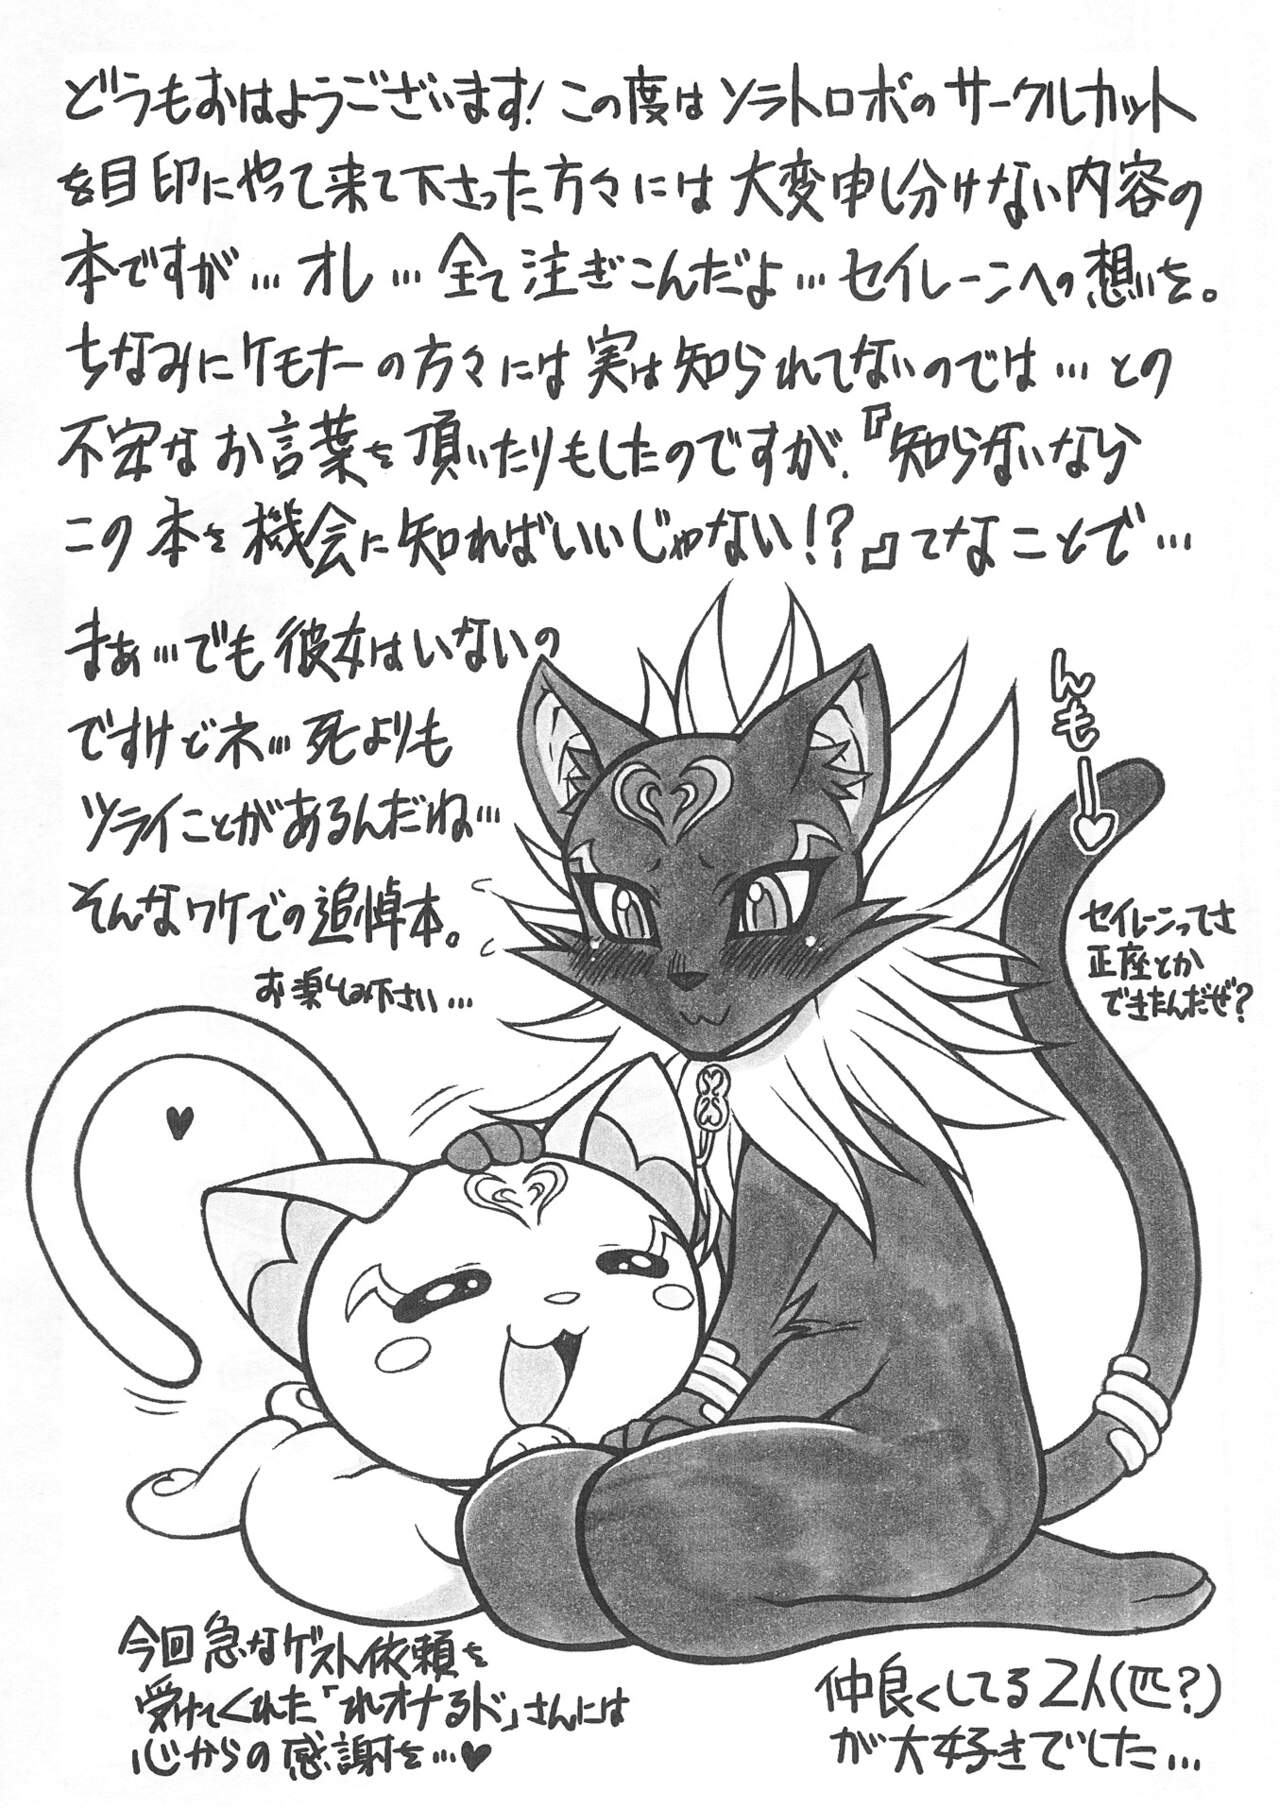 どうもおはようございます!この度はソラトロボのサークルカット
を目印にやって来て下さった方々には大変申し分けない内容の
本ですが…オレ…全て注ぎこんだよ…セイレーンへの想いを。
ちなみにケモナーの方々には実は知られてないのでは…との
不安なお言葉を頂いたりもしたのですが、『知らないなら
この本を機会に知ればいいじゃない!?』てなことで…
まぁ…でも彼女はいないの
ですけどネ…死よりも
ツライことがあるんだね…
そんなワケでの追悼本。
お楽しみ下さい…
んも→♡
セイレーンってさ
正座とか
できたんだぜ?
♥
今回急なゲスト依頼を
受けてくれた「れオナるド」さんには
心からの感謝を…♥
仲良くしてる2人(匹?)
が大好きでした…